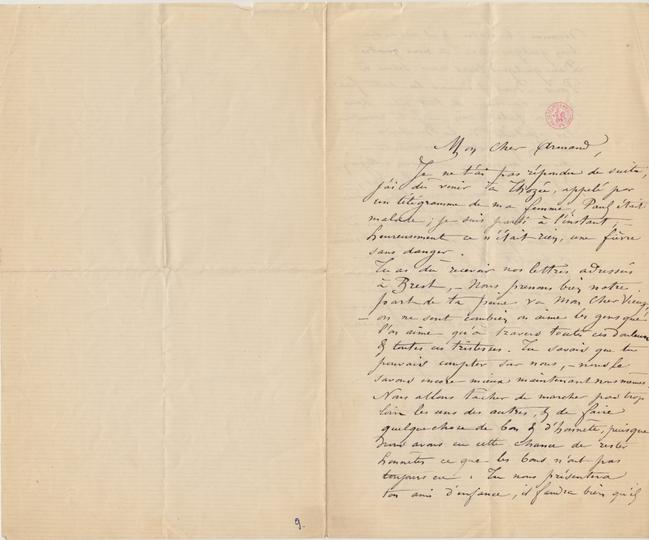 Mon cher Armand,
Je ne t'ai pas répondu de suite,
j'ai dû venir à Thozée, appelé par
un télégramme de ma femme, Paul était
malade ; je suis parti à l'instant,
heureusement ce n'était rien, une fièvre
sans danger.
Tu as dû recevoir nos lettres adressées
à Brest, – Nous prenons bien notre
part de ta peine va Mon Cher Vieux
– on ne sent combien on aime les gens que
l'on aime qu'à travers toutes ces douleurs
& toutes ces tristesses. Tu savais que tu
pouvais compter sur nous, – nous le
savons encore mieux maintenant nous mêmes.
Nous allons tâcher de marcher pas trop
loin les uns des autres, & de faire
quelque chose de bon & d'honnête, puisque
nous avons eu cette chance de rester
honnêtes ce que les bons n'ont pas
toujours eu. Tu nous présentera
ton ami d'enfance, il faudra bien qu'il
9.